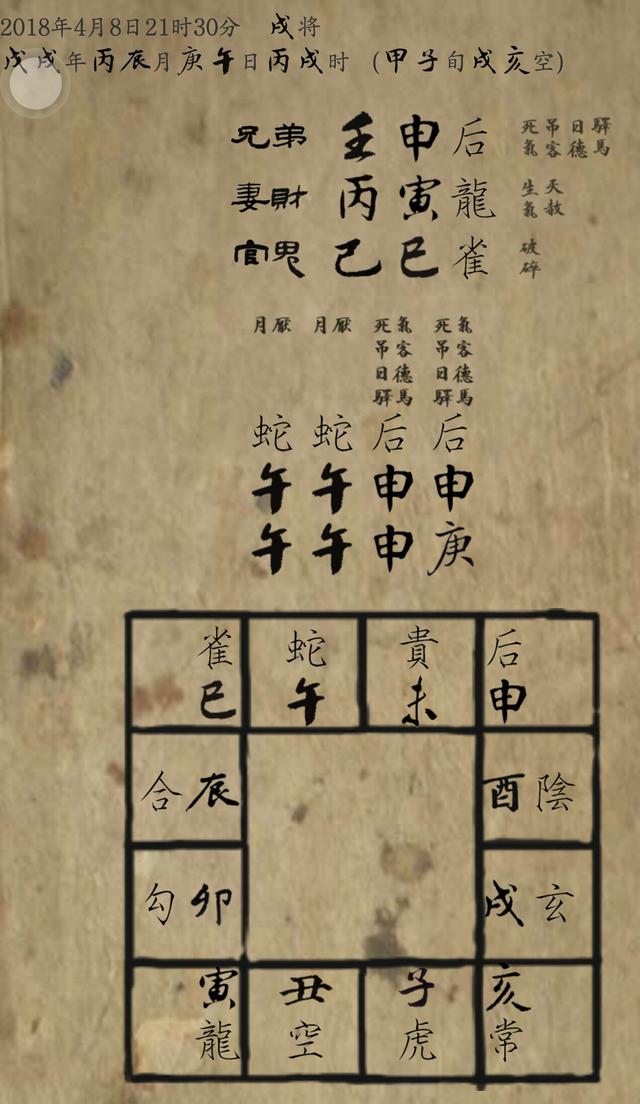 2018年4月8日21时30分 戌将
戊戌年丙辰月庚午日丙戌时 (甲子旬戌亥空)
兄弟 壬申后 死氣 吊客 日德 驿馬
妻財 丙寅龍 生氣 天赦
官鬼 己巳雀 破碎
月厭 月厭 死氣 死氣
吊客 吊客
日德 日德
驿馬 驿馬
蛇 蛇 后 后
午 午 申 申
午 午 申 庚
雀 蛇 貴 后
巳 午 未 申
合辰 酉陰
勾卯 戌玄
寅 丑 子 亥
龍 空 虎 常